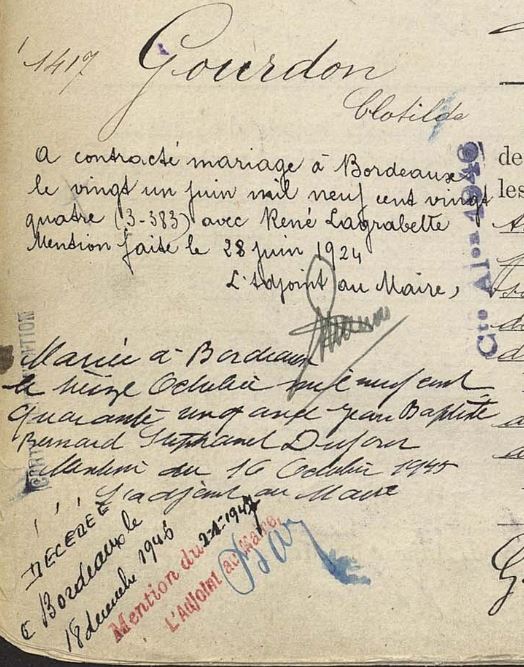 1417
Gourdon
Clotilde
A contracté mariage à Bordeaux
le vingt un juin mil neuf cent vingt
quatre (3-383) avec René Lagrabette
Mention faite le 28 juin 1924
L'Adjoint au Maire,
Cte Alon 1946
Mariée à Bordeaux
le seize Octobre mil neuf cent
quarante cinq avec Jean Baptiste
Bernard Stephanel Dufour
Mention du 16 Octobre 1945
L'adjoint au Maire
DECEDEE
à Bordeaux le
18 décembre 1946
Mention du 2-1-1947
L'Adjoint au Maire,
de
les
G